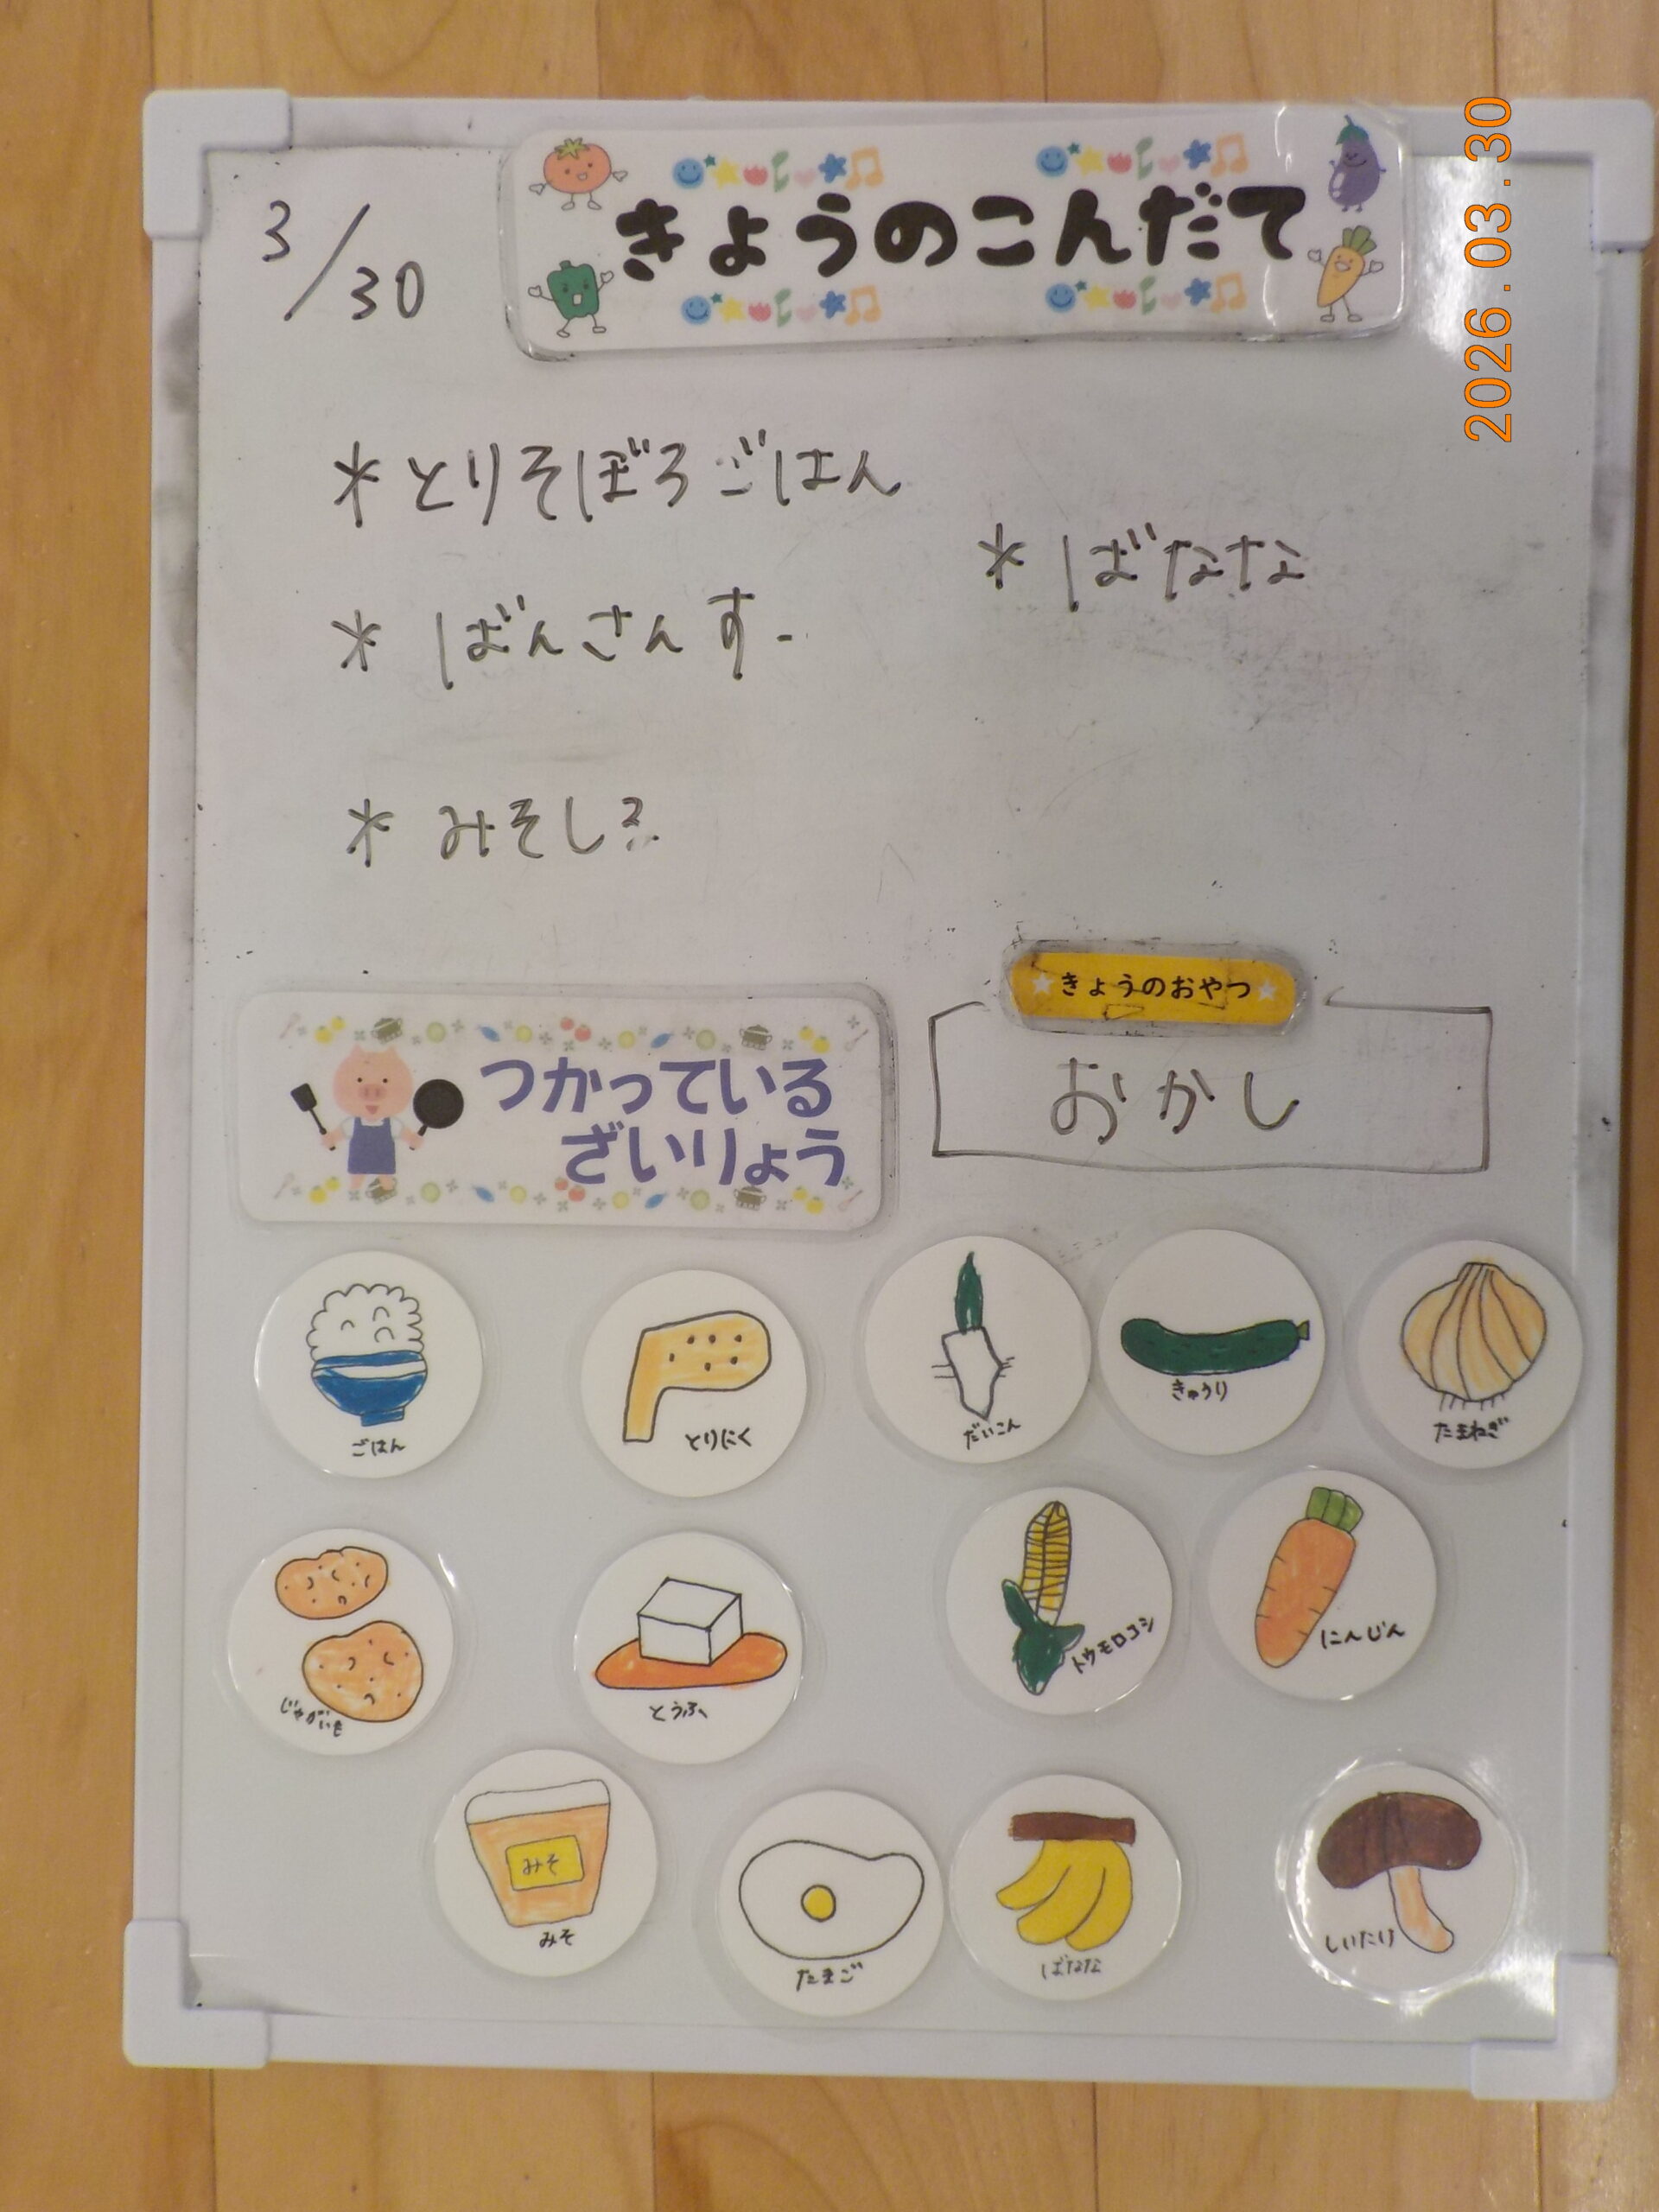 3/30
きょうのこんだて
2026.03.30
*とりそぼろごはん
*ばなな
*ばんさんすー
*みそしる
きょうのおやつ
おかし
つかっている
ざいりょう
ごはん
とりにく
だいこん
きゅうり
たまねぎ
じゃがいも
とうふ
トウモロコシ
にんじん
みそ
みそ
たまご
ばなな
しいたけ